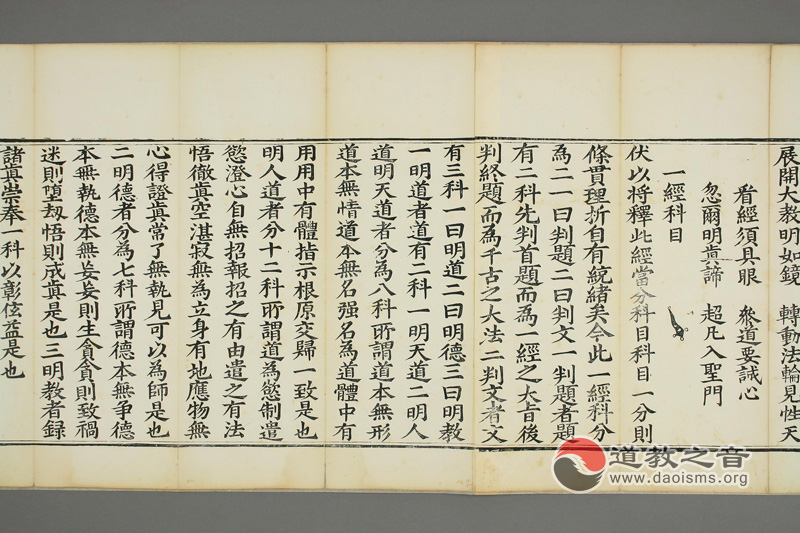 展開大教明如鏡　轉動法輪見性天
看經須具眼　叅道要誠心
忽爾明眞諦　超凡入聖門
一經科目
伏以将釋此經當分科目科目一分則
條貫理折自有統緒矣今此一經科分
為二一曰判題二曰判文一判題者題
有二科先判首題而為一經之大㫖後
判終題而為千古之大法二判文者文
有三科一曰明道二曰明德三曰明教
一明道者道有二科一明天道二明人
道明天道者分為八科所謂道本無形
道本無情道本無名强名為道體中有
用用中有體指示根原交歸一致是也
明人道者分十二科所謂道為慾制遣
慾澄心自無招報招之有由遣之有法
悟徹真空湛寂無為立身有地應物無
心得證真常了無執見可以為師是也
二明德者分為七科所謂德本無争德
本無執德本無妄妄則生貪貪則致禍
迷則堕刼悟則成真是也三明教者録
諸真崇奉一科以彰弦益是也
道教之音
www.daoisms.org